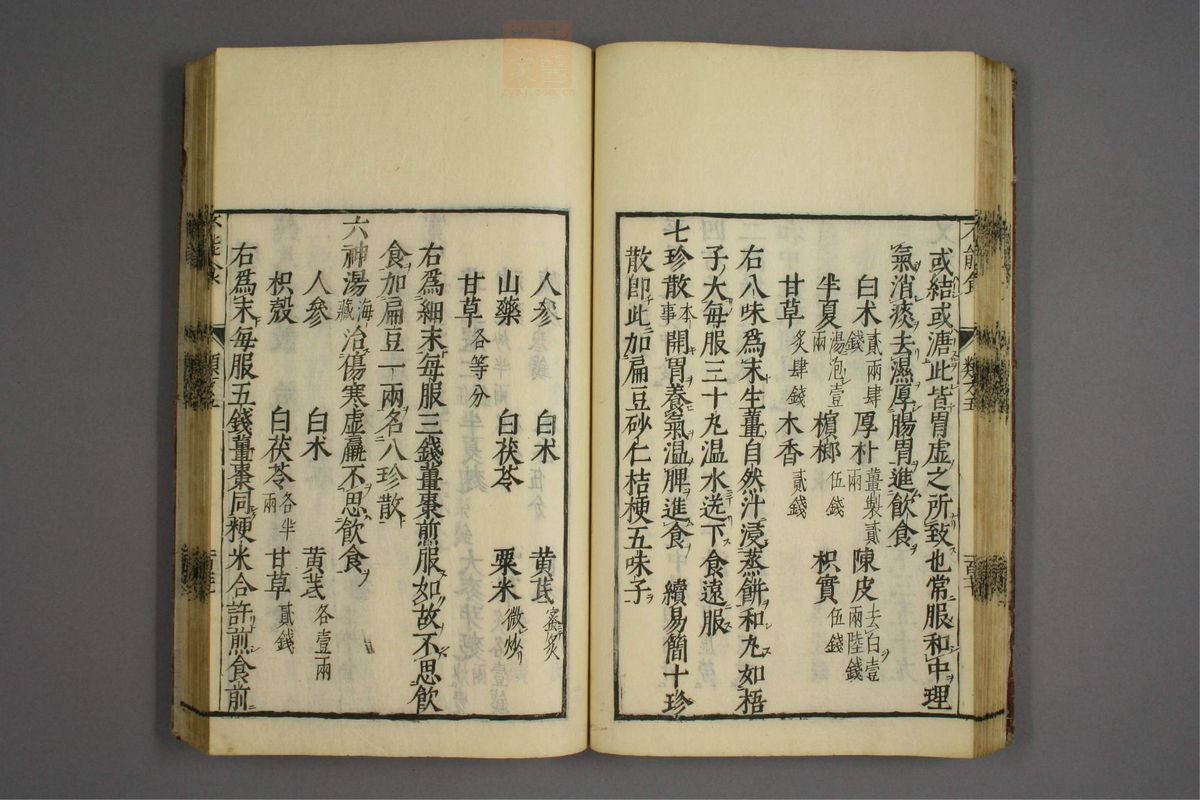 或結或溏此皆胃虛之所致也常服和中理
氣消痰去濕厚腸胃進飲食
白朮貳兩肆錢 厚朴薑製貳兩 陳皮去白壹兩陸錢
半夏湯泡壹兩 檳榔伍錢 枳實伍錢
甘草炙肆錢 木香貳錢
右八味爲末生薑自然汁浸蒸餅和丸如梧
子大每服三十丸温水送下食遠服
七珍散本事 開胃養氣温脾進食 續易簡十珍
散即此加扁豆砂仁桔梗五味子
人參 白朮 黄芪蜜炙
山藥 白茯苓 粟米微炒
甘草各等分
右爲細末每服三錢薑棗煎服如故不思飲
食加扁豆一兩名八珍散
六神湯海藏 治傷寒虚羸不思飲食
人參 白朮 黄芪各壹兩
枳殼 白茯苓各半兩 甘草貳錢
右爲末每服五錢薑棗同粳米合許煎食前